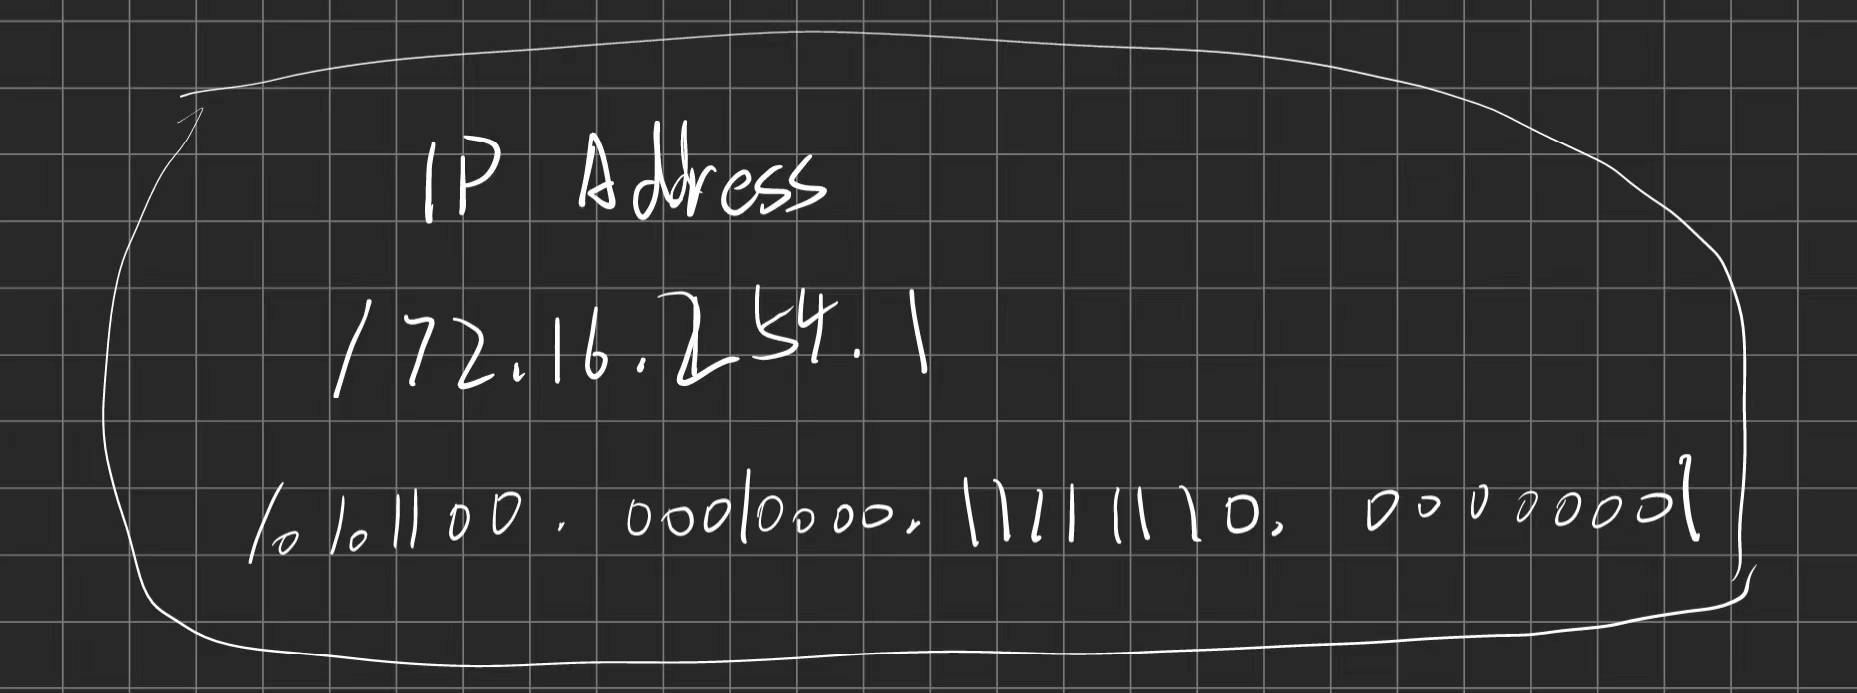 IP Address
172.16.254.1
10101100.00010000.11111110.00000001